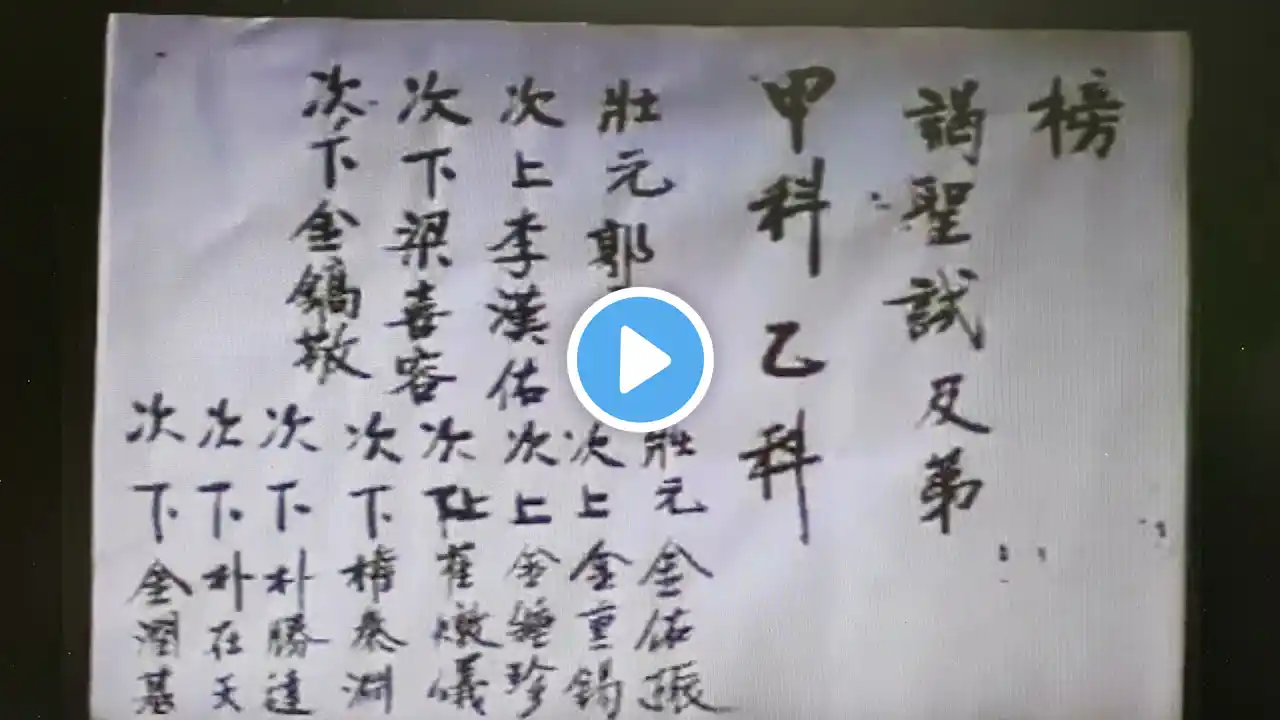 榜
謁聖試及第
甲科乙科
壯元郭
次上李漢佑
次下梁喜容
次下金鎬敬
壯元金佑振
次上金重錫
次上金鍾珍
次上崔燉儀
次下權泰淵
次下朴勝達
次下朴在天
次下金潤基